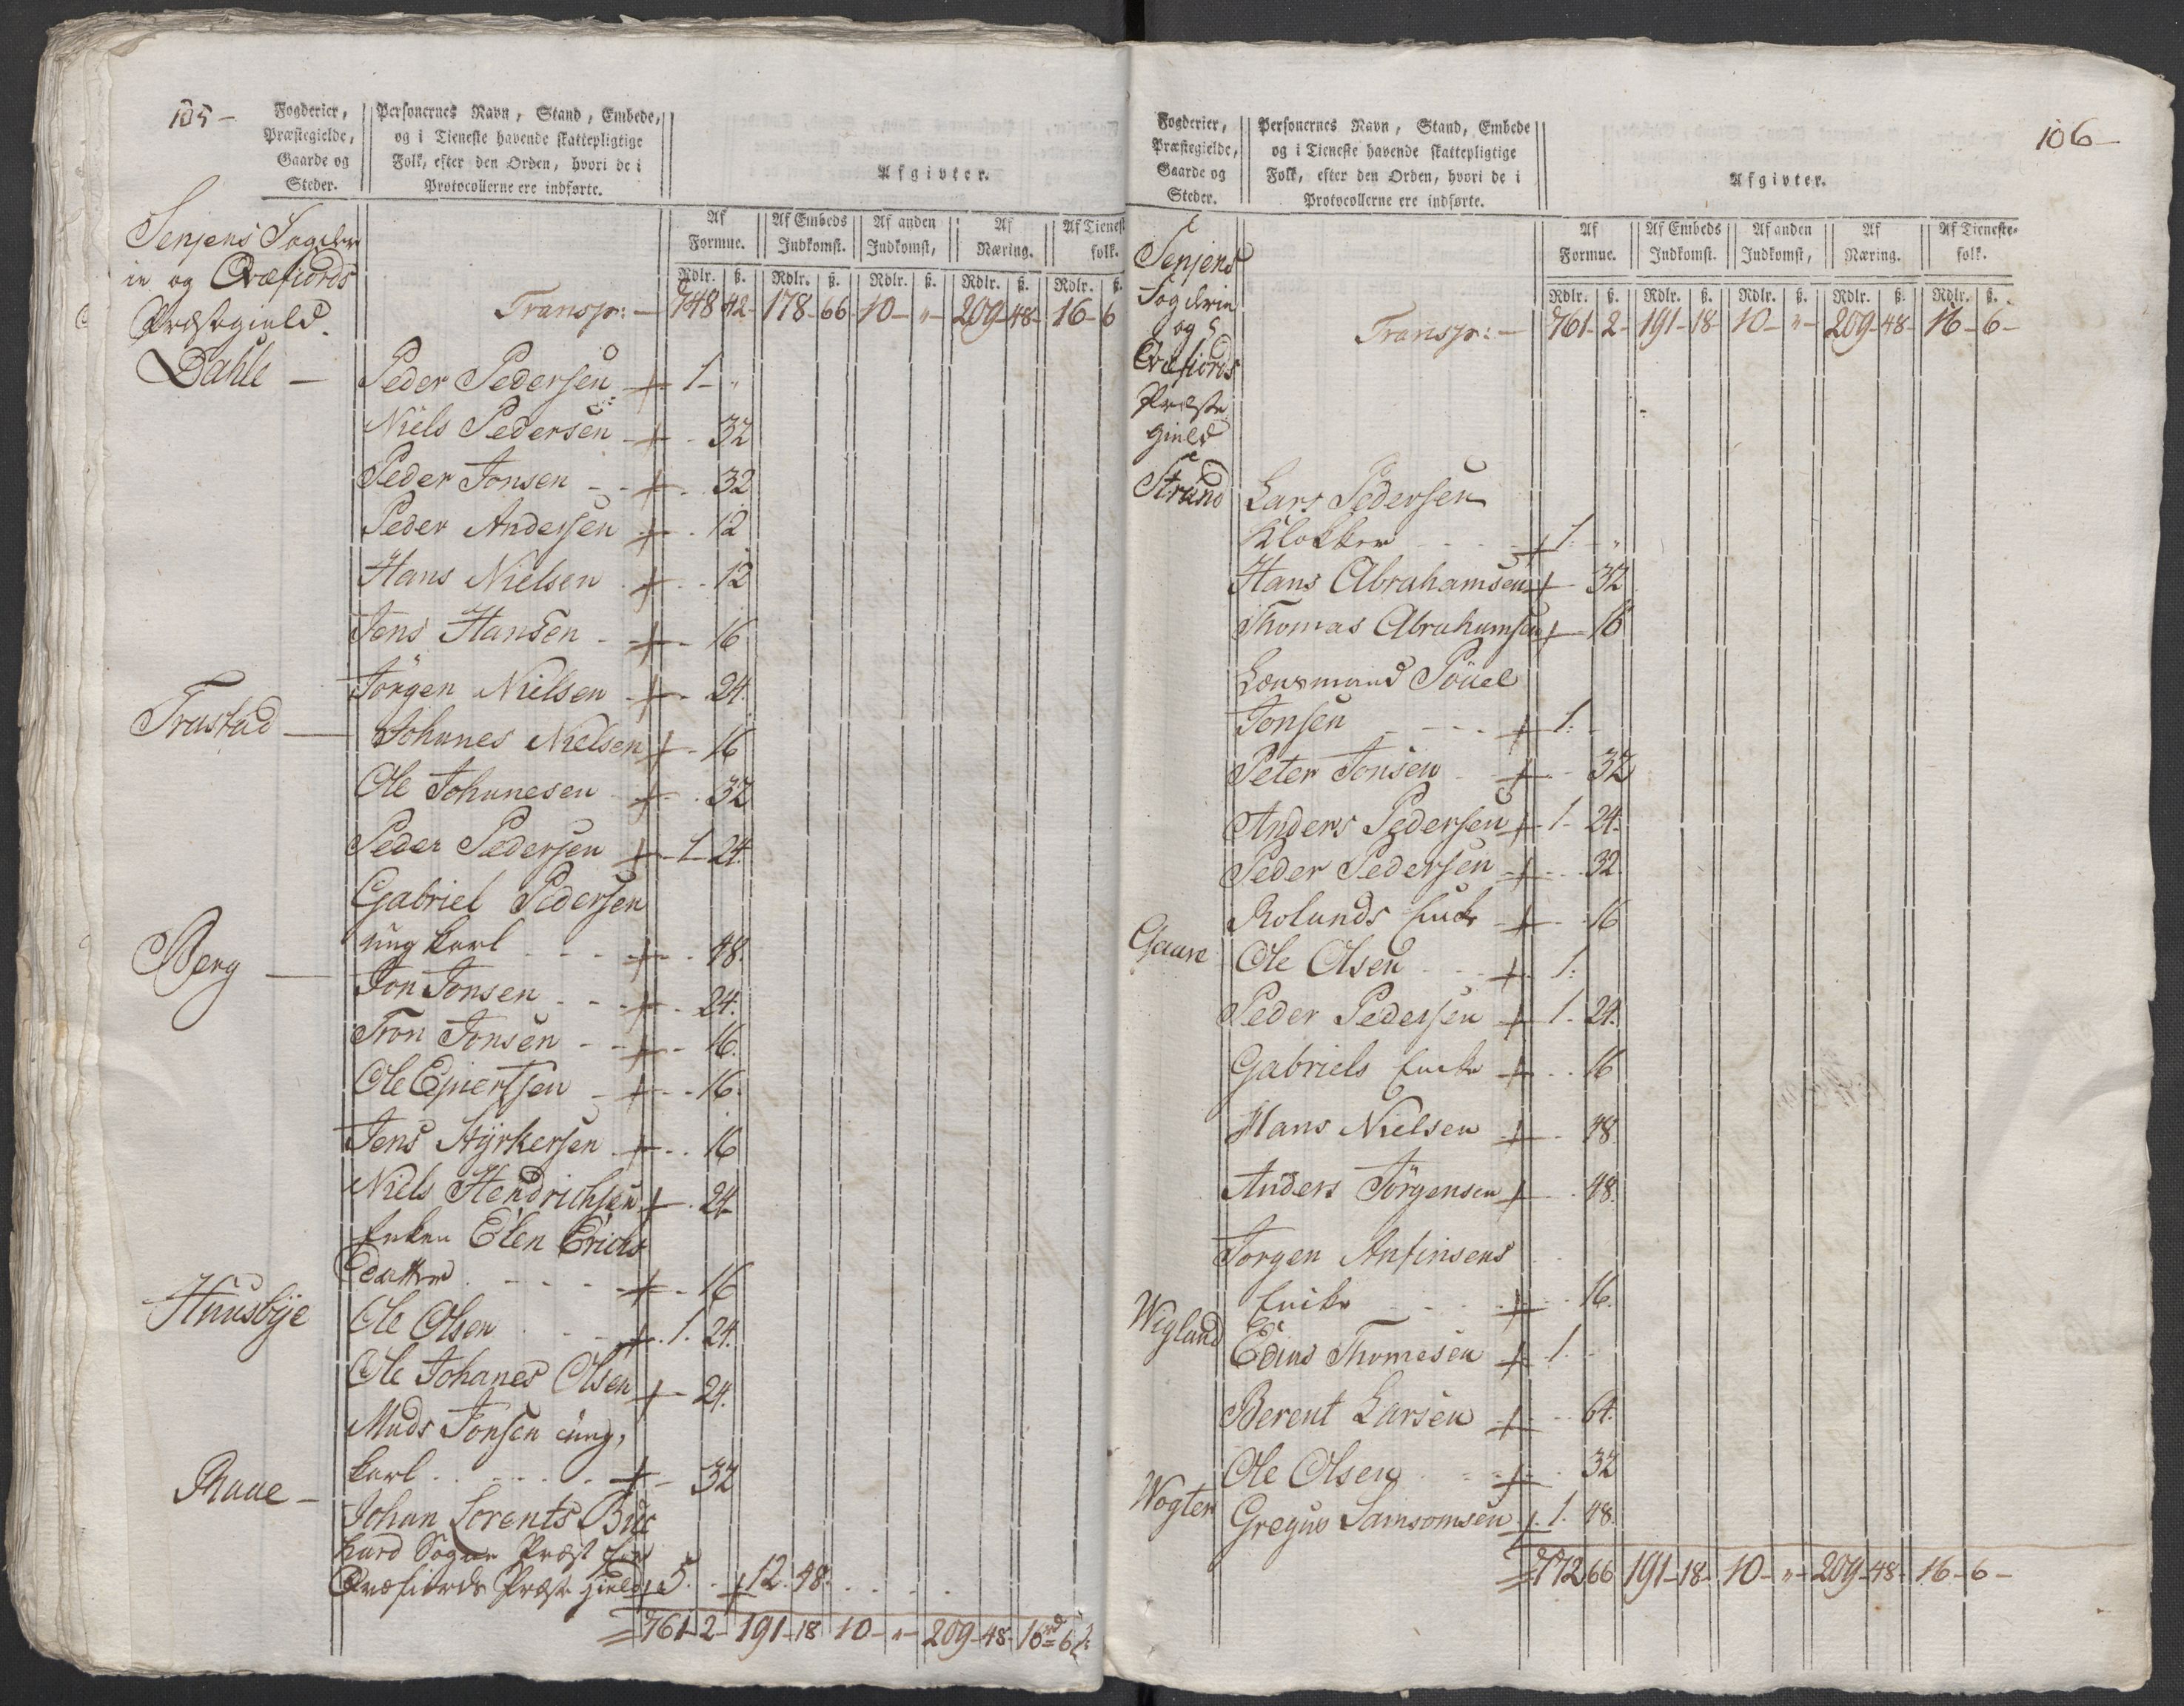 105 –
Fogderier, Præstegielde, Gaarde og Steder.
Personernes Navn, Stand, Embede, og i Tieneste havende skattepligtige Folk, efter den Orden, hvori de i Protocollerne ere indførte.
Afgivter.
Af Formue. Af Embeds Indkomst. Af anden Indkomst, Af Næring. Af Tieneste folk.
Rdlr. ß. Rdlr. ß. Rdlr. ß. Rdlr. ß. Rdlr. ß.
Senjens Fogderie
ie og Qvæfiords
Præstegield.
Transp: – 748 42 – 178 – 66 – 10 – " – 209 – 48 – 16 – 6
Dahle – Peder Pedersen + 1 – "
Niels Pedersen + – 32
Peder Jonsen – – + – 32
Peder Andersen + – 12
Hans Nielsen + – 12
Jens Hansen – + – 16
Jörgen Nielsen + – 24.
Trastad – Johanes Nielsen + – 16
Ole Johannesen + – 32
Peder Pedersen + – 1 – 24.
Gabriel Pedersen
ung karl – – – + – 48.
Berg – Jon Jonsen – – + – 24.
Tron Jonsen – – + – 16.
Ole Ejnertsen – + – 16.
Jens Styrkersen + – 16
Niels Hendrichsen + – 24
Enken Elen Erichs
datter – – – + – 16
Huusbÿe Ole Olsen – – + 1. 24.
Ole Johanes Olsen + – 24.
Mads Jonsen ung,
karl – – – + – 32
Raae – Johan Lorents Buc
hard Sogne Præst for
Qvæfiords Præste gield + 5. – + 12. 48.
761 – 2 – 191 – 18 10 – " – 209 – 48 – 16 rd 6 ß
106 –
Fogderier, Præstegielde, Gaarde og Steder.
Personernes Navn, Stand, Embede og i Tieneste havende skattepligtige Folk, efter den Orden, hvori de i Protocollerne ere indførte.
Afgivter.
Af Formue. Af Embeds Indkomst. Af anden Indkomst, Af Næring. Af Tieneste-folk.
Rdlr. ß. Rdlr. ß. Rdlr. ß. Rdlr. ß. Rdlr. ß.
Senjens
Fogderie
og
Qvæfiords
Præste
gield
Transp: – 761 – 2 – 191 – 18 – 10 – " – 209 – 48 – 16 – 6 –
Strand Lars Pedersen
Klokker – – – + 1. "
Hans Abrahamsen + – 32
Thomas Abrahamsen + – 16
Lensmand Pouel
Jonsen – – – + 1.
Peter Jonsen – + – 32
Anders Pedersen + 1 – 24.
Peder Pedersen + – 32.
Rolands Enke + – 16
Gaare Ole Olsen – – + 1.
Peder Pedersen + 1. 24.
Gabriels Enke + – 16
Hans Nielsen + – 48.
Anders Jörgensen + – 48.
Jorgen Anfinsens
Enke – – – + – 16.
Wigland Edins Thomesen + 1. –
Berent Larsen + – 64.
Ole Olsen – – + – 32
Wogten Gregus Samsomsen + 1. 48.
772 66 191 – 18 – 10 – " – 209 – 48 – 16 – 6 –